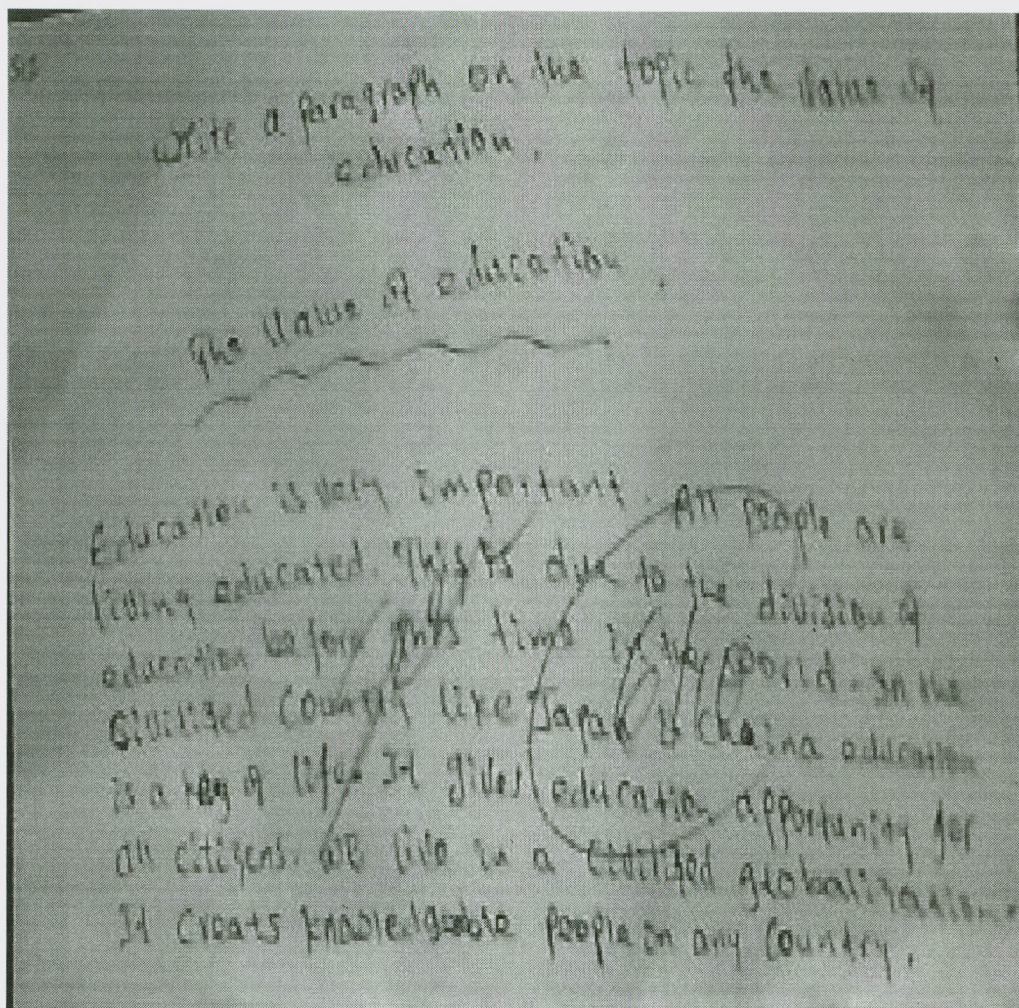 Write a paragraph on the topic the Value of
education.
The Value of education.
Education is very important. All people are
living educated. This is due to the division of
education before this time in the world. In the
Civilized Country like Japan & Chaina education
is a key of life. It gives education opportunity for
all citizens. We live in a Civilized globalization.
It creats knowledgeable people in any Country.